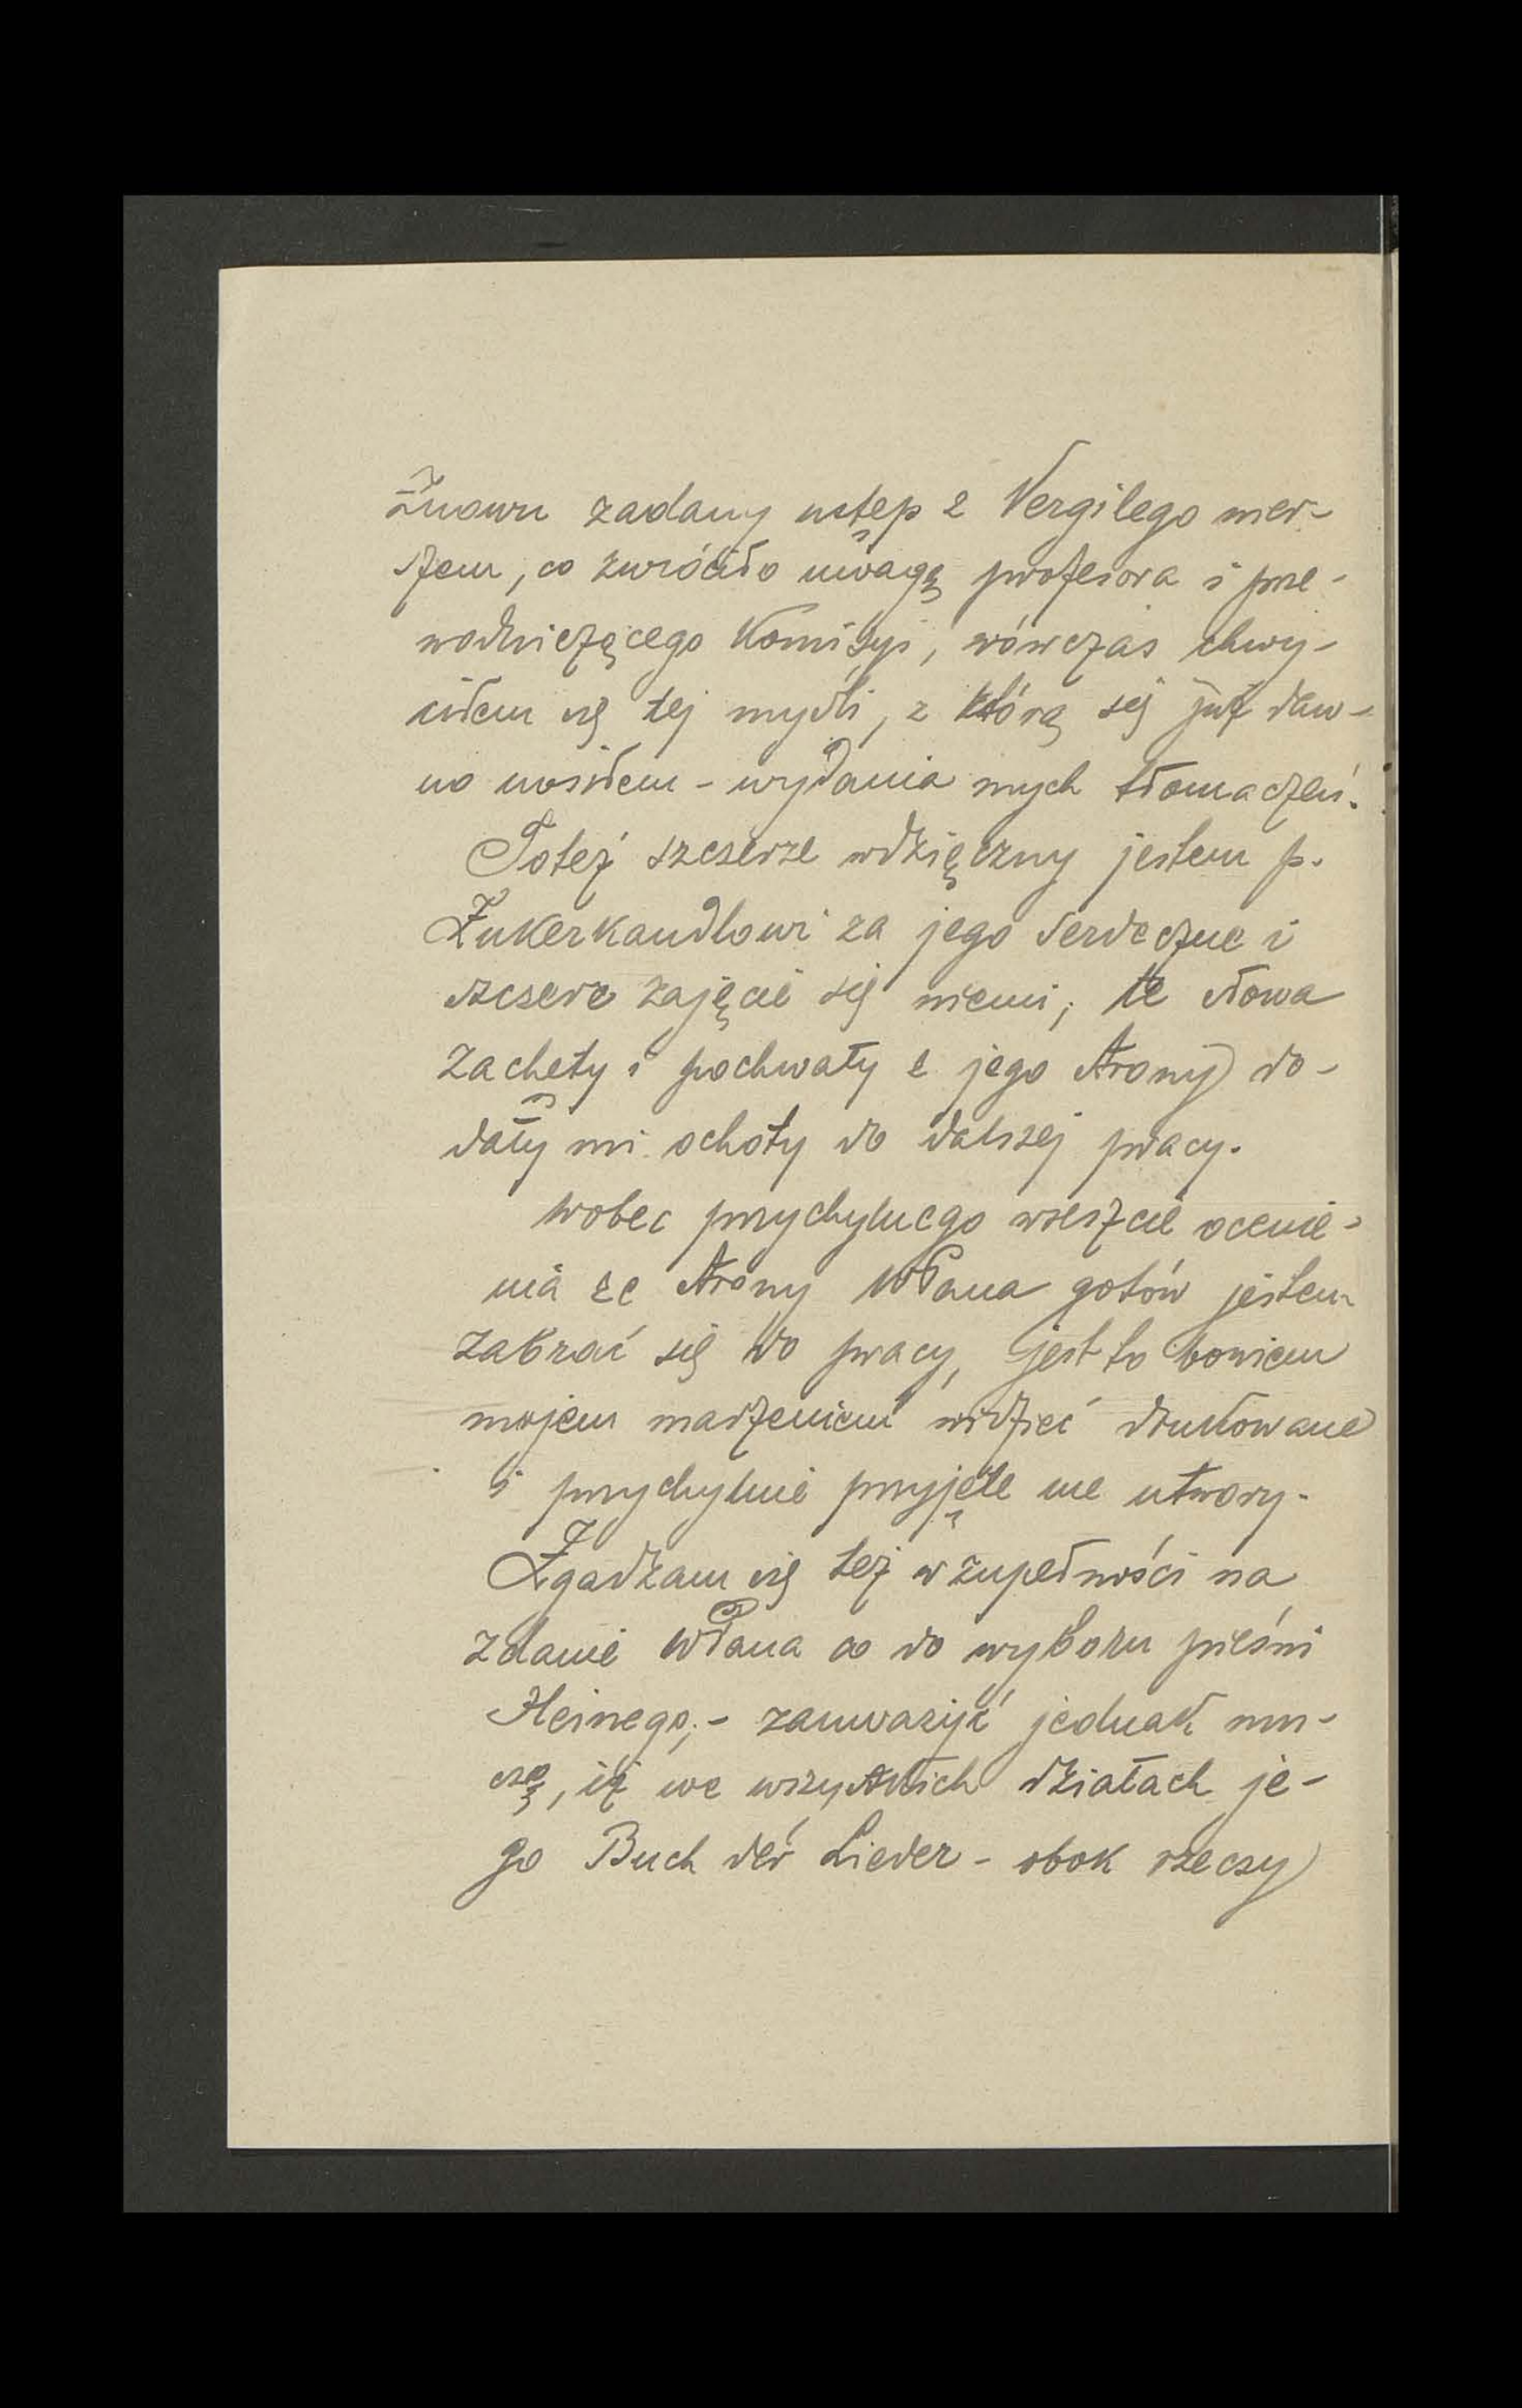 Znowu zadany ustęp z Vergilego wier-
szem, co zwróciło uwagę profesora i prze-
wodniczącego Komisyi, wówczas chwy-
ciłem się tej myśli, z którą się już daw-
no nosiłem - wydania mych tłomaczeń.
Toteż szczerze wdzięczny jestem p.
Zukerkandlowi za jego serdeczne i
szczere zajęcie się niemi; te słowa
zachęty i pochwały z jego strony do-
dały mi ochoty do dalszej pracy.
Wobec przychylnego wreszcie ocenie-
nia ze strony WPana gotów jestem
zabrać się do pracy, jest to bowiem
mojem marzeniem widzieć drukowane
i przychylnie przyjęte me utwory.
Zgadzam się też w zupełności na
zdanie WPana co do wyboru pieśni
Heinego; - zauważyć jednak mu-
szę, iż we wszystkich działach je-
go Buch der Lieder - obok rzeczy